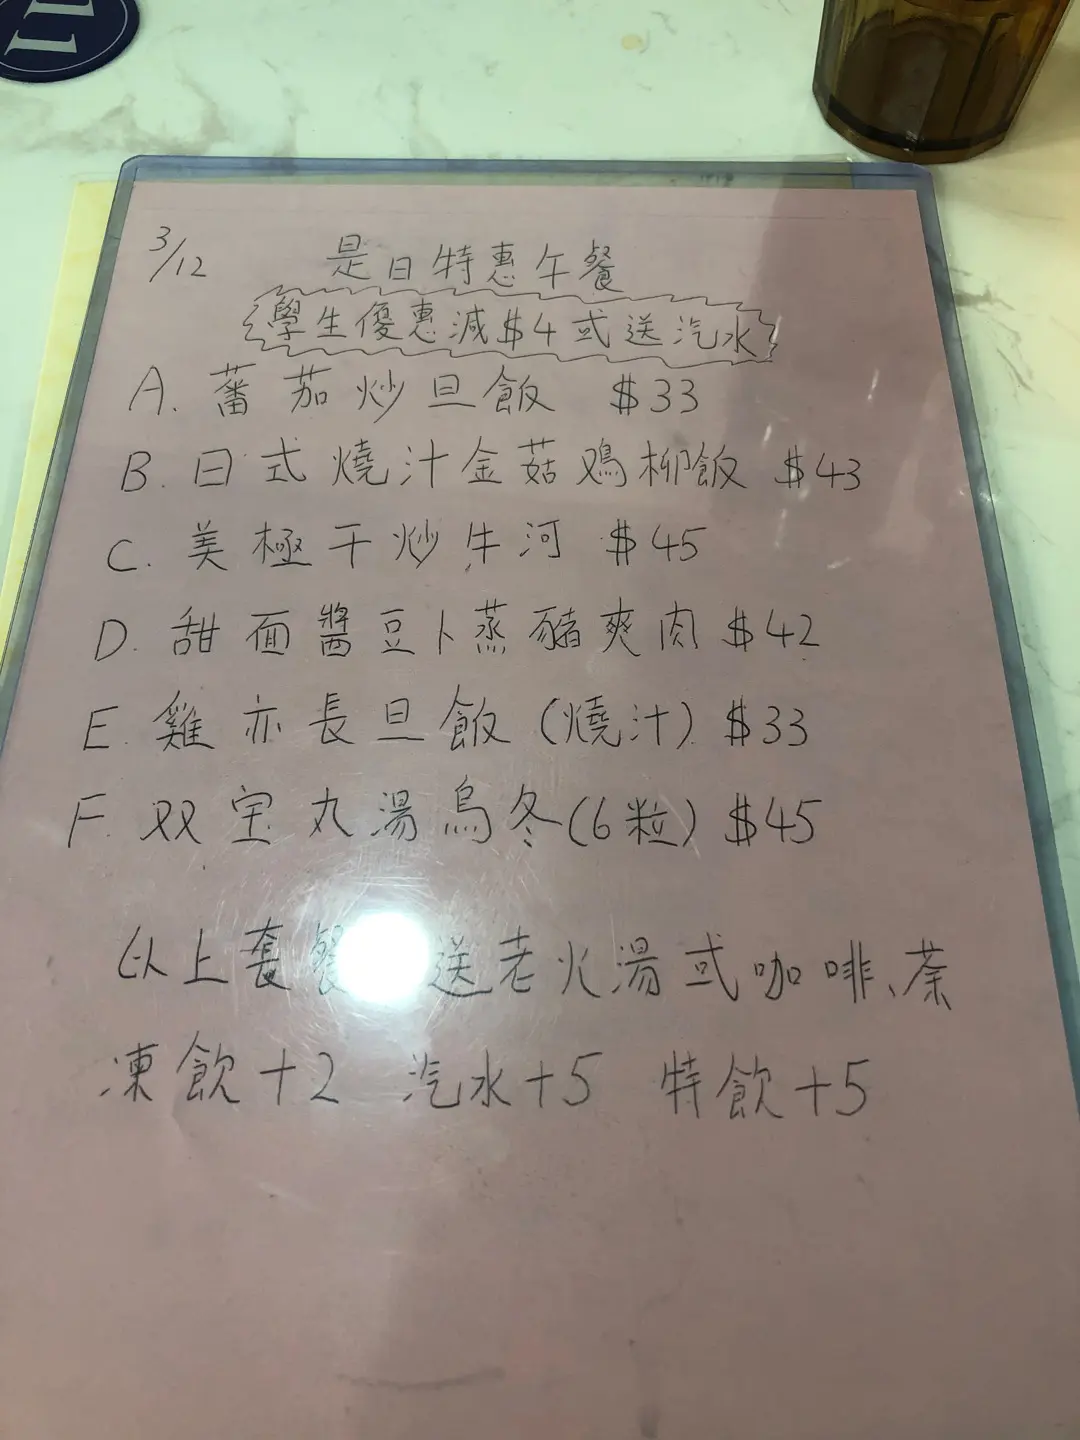 3/12 是日特惠午餐
學生優惠減$4或送汽水
A. 蕃茄炒旦飯 $33
B. 日式燒汁金菇鳮柳飯 $43
C. 美極干炒牛河 $45
D. 甜面醬豆卜蒸豬爽肉 $42
E. 雞亦長旦飯 (燒汁) $33
F. 双宝丸湯烏冬(6粒) $45
以上套餐 送老火湯或咖啡、茶
凍飲+2 汽水+5 特飲+5